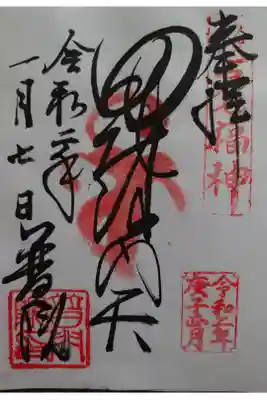 奉拝
七福神
毘沙門天
令和二年
一月七日 普門院
令和二年
庚子正月